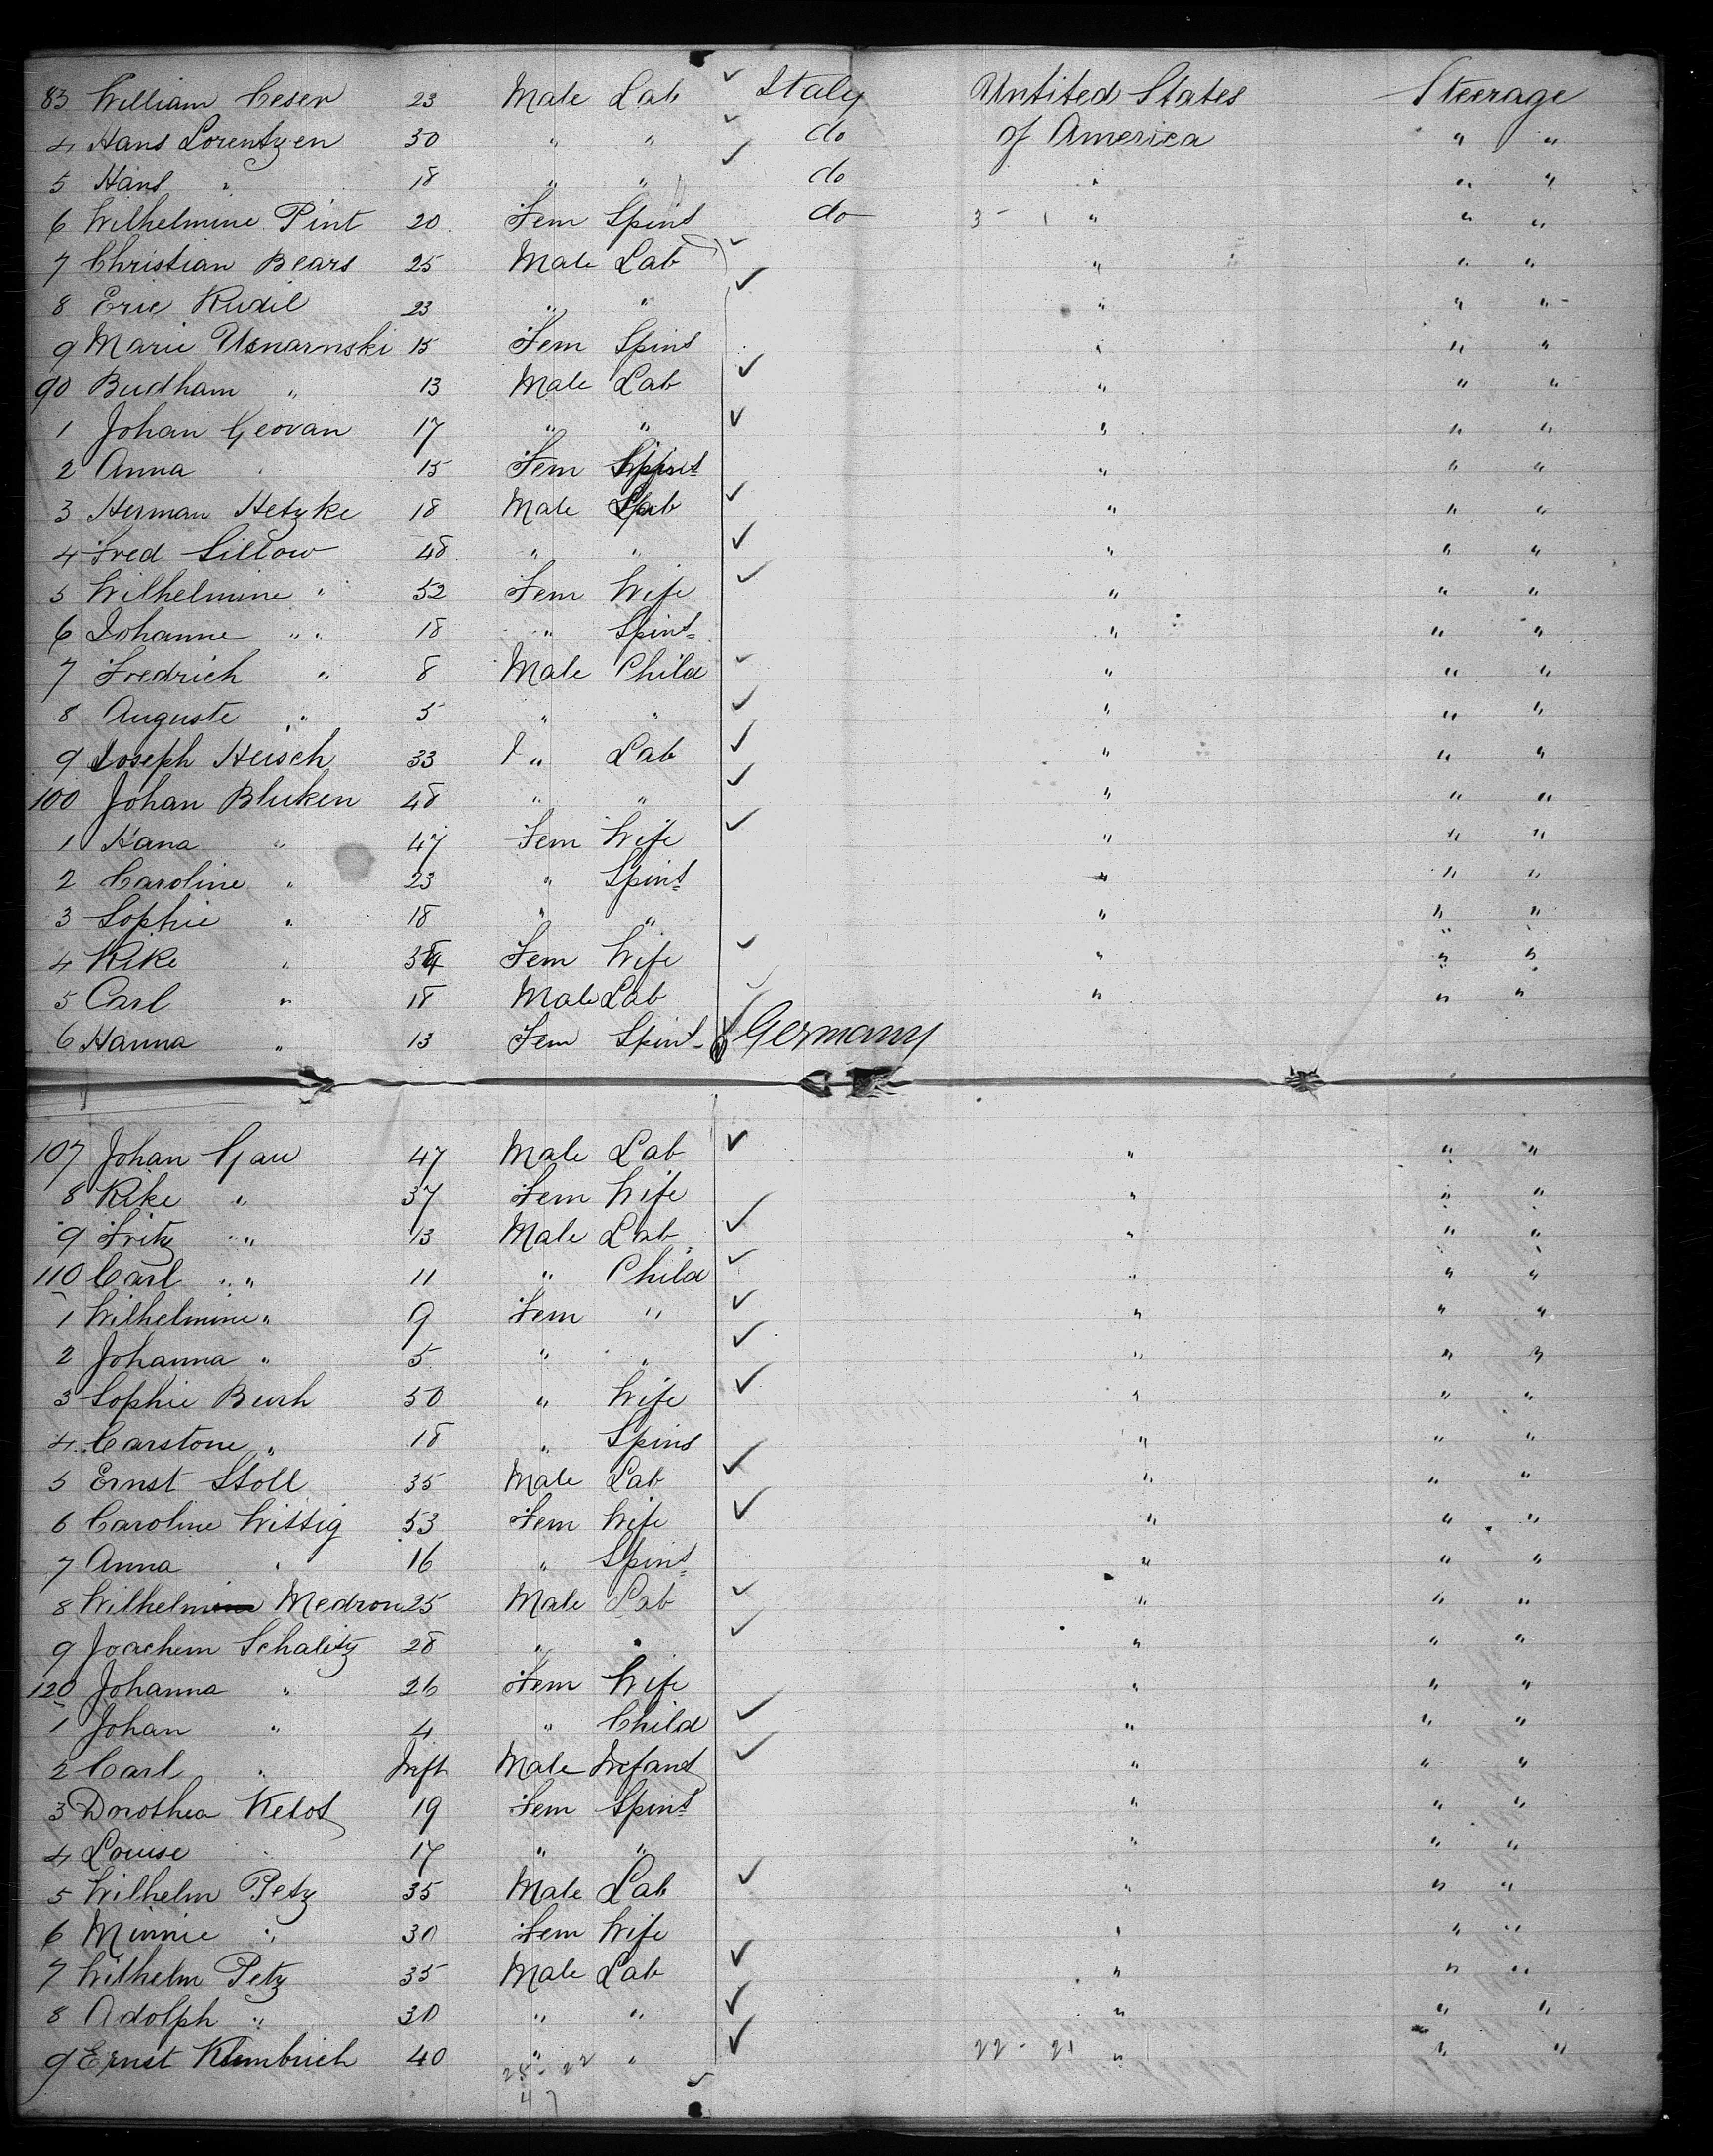 83 William Ceser 23 Male Lab Italy Untited States Steerage
4 Hans Lorentzen 30 " " do of America " "
5 Hans " 18 " " do " " "
6 Wilhelmine Pint 20 Fem Spins do 3 - 1 " " "
7 Christian Bears 25 Male Lab " " "
8 Eric Rudil 23 " " " " "
9 Marie Usnarnski 15 Fem Spins " " "
90 Budham " 13 Male Lab " " "
1 Johan Geovan 17 " " " " "
2 Anna " 15 Fem Spins " " "
3 Herman Hetzke 18 Male Lab " " "
4 Fred Lillow 48 " " " " "
5 Wilhelmine " 52 Fem Wife " " "
6 Johanne " 18 " Spins " " "
7 Fredrich " 8 Male Child " " "
8 Auguste " 5 " " " " "
9 Joseph Heisch 33 " Lab " " "
100 Johan Bluken 48 " " " " "
1 Hana " 47 Fem Wife " " "
2 Caroline " 23 " Spins " " "
3 Sophie " 18 " " " " "
4 Rike " Fem Wife " " "
5 Carl " 18 Male Lab " " "
6 Hanna " 13 Fem Spins Germany
107 Johan Gau 47 Male Lab " " "
8 Rike " 37 Fem Wife " " "
9 Fritz " 13 Male Lab " " "
110 Carl " 11 " Child " " "
1 Wilhelmine " 9 Fem " " " "
2 Johanna " 5 " " " " "
3 Sophie Bush 50 " Wife " " "
4 Carstone " 18 " Spins " " "
5 Ernst Stoll 35 Male Lab " " "
6 Caroline Wittig 53 Fem Wife " " "
7 Anna " 16 " Spins " " "
8 Wilhelm Medron 25 Male Lab " " "
9 Joachim Schalitz 28 " " " " "
120 Johanna " 26 Fem Wife " " "
1 Johan " 4 " Child " " "
2 Carl " Inft Male Infant " " "
3 Dorothea Ketot 19 Fem Spins " " "
4 Louise " 17 " " " " "
5 Wilhelm Petz 35 Male Lab " " "
6 Minnie " 30 Fem Wife " " "
7 Wilhelm Petz 35 Male Lab " " "
8 Adolph " 30 " " " " "
9 Ernst Klumbrich 40 " " 22 - 21 " " "
25 - 22
47